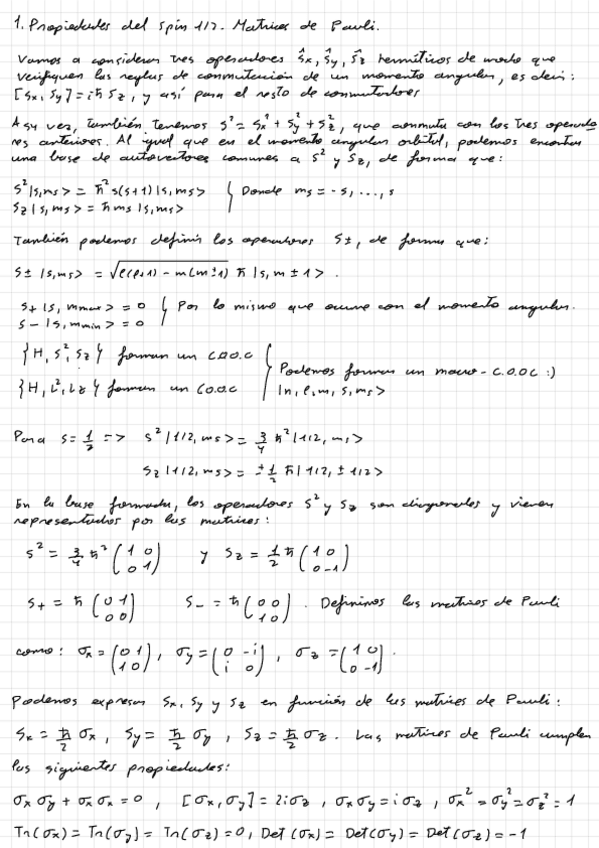 1. Propiedades del spin 1/2. Matrices de Pauli.
Vamos a considerar tres operadores Ŝx, Ŝy, Ŝz hermíticos de modo que
verifiquen las reglas de conmutación de un momento angular, es decir:
[Sx, Sy] = iħ Sz, y así para el resto de conmutadores
A su vez, también tenemos S² = Sx² + Sy² + Sz², que conmuta con los tres operado
res anteriores. Al igual que en el momento angular orbital, podemos encontrar
una base de autovectores comunes a S² y Sz, de forma que:
S²|s,ms> = ħ² s(s+1)|s,ms> } Donde ms = -s, ..., s
Sz|s,ms> = ħ ms |s,ms>
También podemos definir los operadores S±, de forma que:
S± |s,ms> = √(l(l+1) - m(m±1)) ħ |s, m ± 1> .
S+ |s, mmax> = 0 } Por lo mismo que ocurre con el momento angular.
S- |s, mmin> = 0
{H, S², Sz} forman un C.O.O.C { Podemos formar un macro-C.O.O.C :)
{H, L², Lz} forman un C.O.O.C { |n, l, m, s, ms>
Para s = 1/2 => S² |1/2, ms> = 3/4 ħ² |1/2, ms>
Sz |1/2, ms> = ±1/2 ħ |1/2, ±1/2>
En la base formada, los operadores S² y Sz son diagonales y vienen
representados por las matrices:
S² = 3/4 ħ² (1 0 / 0 1) y Sz = 1/2 ħ (1 0 / 0 -1)
S+ = ħ (0 1 / 0 0) S- = ħ (0 0 / 1 0) . Definimos las matrices de Pauli
como: σx = (0 1 / 1 0), σy = (0 -i / i 0), σz = (1 0 / 0 -1) .
Podemos expresar Sx, Sy y Sz en función de las matrices de Pauli:
Sx = ħ/2 σx, Sy = ħ/2 σy, Sz = ħ/2 σz. Las matrices de Pauli cumplen
las siguientes propiedades:
σx σy + σx σx = 0, [σx, σy] = 2iσz, σx σy = i σz, σx² = σy² = σz² = 1
Tr(σx) = Tr(σy) = Tr(σz) = 0, Det(σx) = Det(σy) = Det(σz) = -1